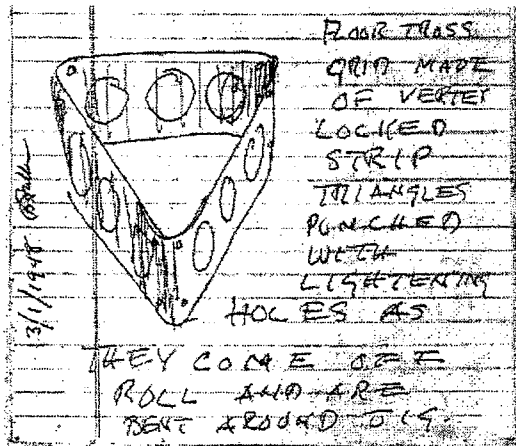 FLOOR TRUSS
GRID MADE
OF VERTEX
LOCKED
STRIP
TRIANGLES
PUNCHED
WITH
LIGHTENING
HOLES AS
THEY COME OFF
ROLL AND ARE
BENT AROUND JIG
3/1/1948